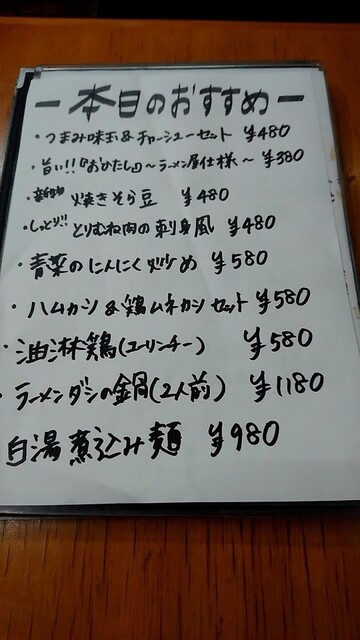 －本日のおすすめ－
・つまみ味玉&チャーシューセット ¥480
・旨い!!『おひたし』～ラーメン屋仕様～ ¥380
・新物 焼きそら豆 ¥480
・しっとり!! とりむね肉の刺身風 ¥480
・青菜のにんにく炒め ¥580
・ハムカツ&鶏ムネカツセット ¥580
・油淋鶏(ユーリンチー) ¥580
・ラーメンダシの鍋(2人前) ¥1180
白湯煮込み麺 ¥980